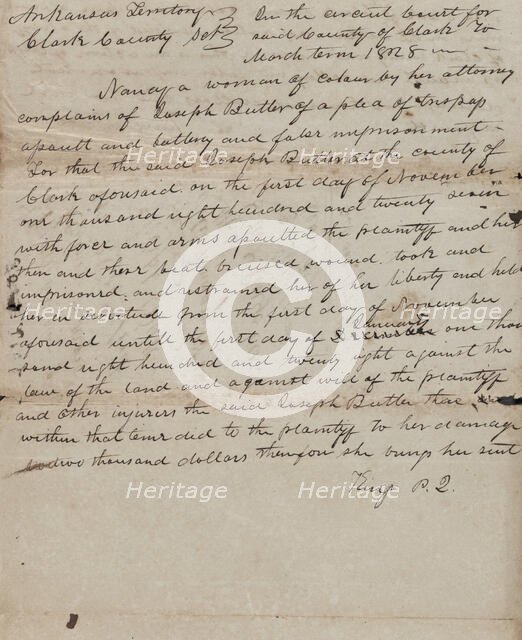 Arkansas Territory } In the circuit court for
Clark County Sct } said County of Clark To
March term 1828
Nancy a woman of colour by her attorney
complains of Joseph Butler of a plea of trespass
assault and battery and false imprisonment.
For that the said Joseph Butler at the county of
Clark aforesaid on the first day of November
one thousand eight hundred and twenty seven
with force and arms assaulted the plaintiff and her
then and there beat bruised wound took and
imprisoned and restrained her of her liberty and held
her in servitude from the first day of November
January
aforesaid until the first day of one thou
sand eight hundred and twenty eight against the
law of the land and against will of the plaintiff
and other injuries the said Joseph Butler there
within that time did to the plaintiff to her damage
two thousand dollars therefore she brings her suit
P. Q.
Heritage Heritage Heritage
Heritage Heritage Heritage
Heritage Heritage Heritage
©